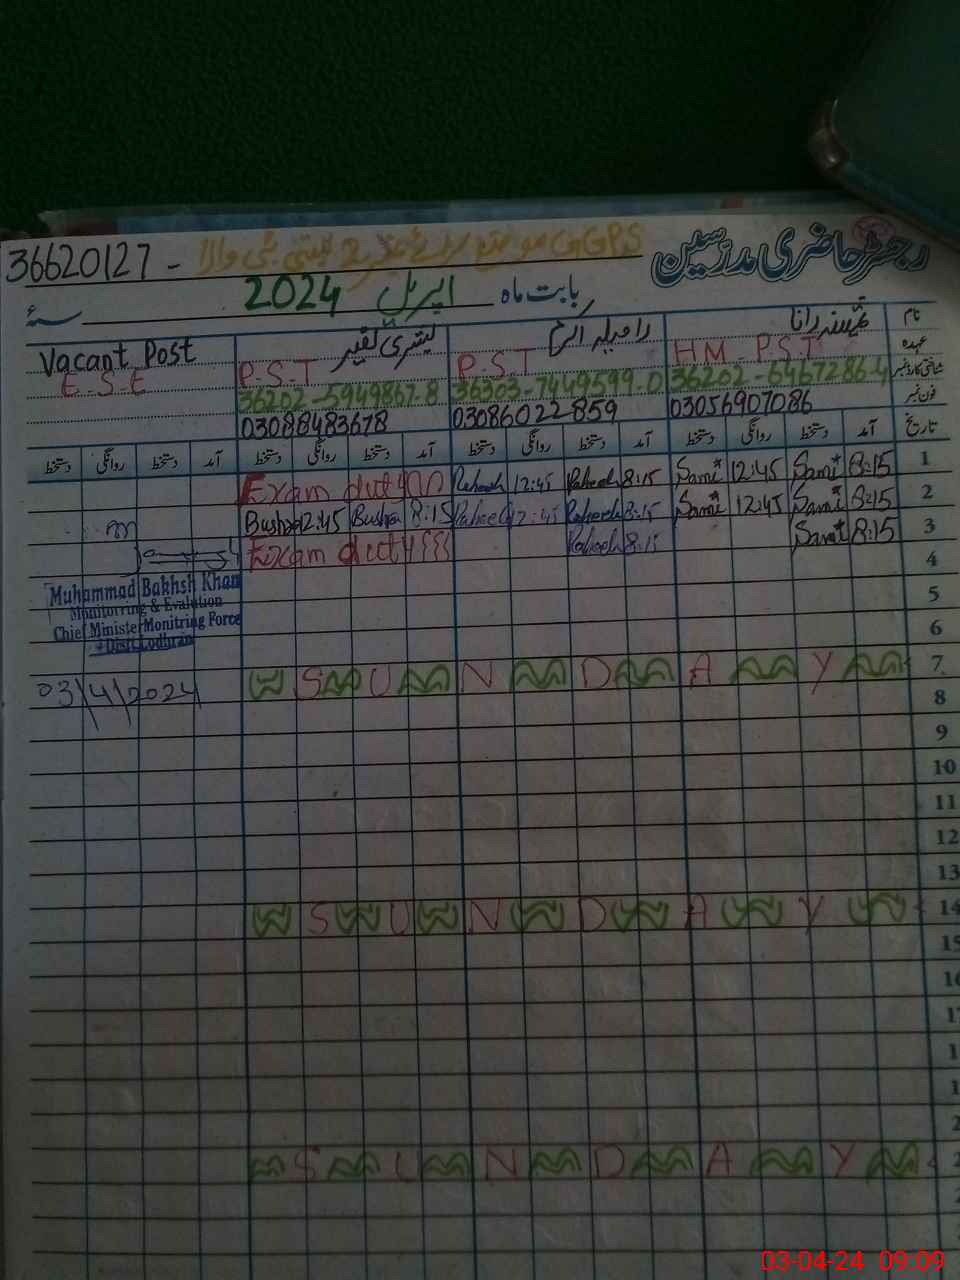 رجسٹر حاضری مدرسین
36620127 - GPS
بابت ماہ اپریل 2024 سنۂ
نام
Vacant Post
عہدہ HM - P.S.T P.S.T P.S.T E.S.E
شناختی کارڈ نمبر 36202-6467286-4 36303-7449599-0 36202-5949867-8
فون نمبر 03056907086 03086022859 03088483678
تاریخ آمد دستخط روانگی دستخط آمد دستخط روانگی دستخط آمد دستخط روانگی دستخط آمد دستخط روانگی دستخط
1 8:15 Sami 12:45 Sami 8:15 Raheela 12:45 Raheela Exam duty
2 8:15 Sami 12:45 Sami 8:15 Raheela 12:45 Raheela 8:15 Bushra 12:45 Bushra
3 8:15 Sami 8:15 Raheela Exam duty
4
Muhammad Bakhsh Khan
5
Monitorring & Evalution
Chief Ministe Monitring Force
6
Distt Lodhran
7 SUNDAY
03/4/2024
8
9
10
11
12
13
14 SUNDAY
15
16
SUNDAY
03-04-24 09:09